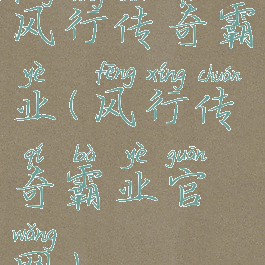 风行传奇霸
yè fēng xíng chuán
业(风行传
qí bà yè guān
奇霸业官
wǎng
网)